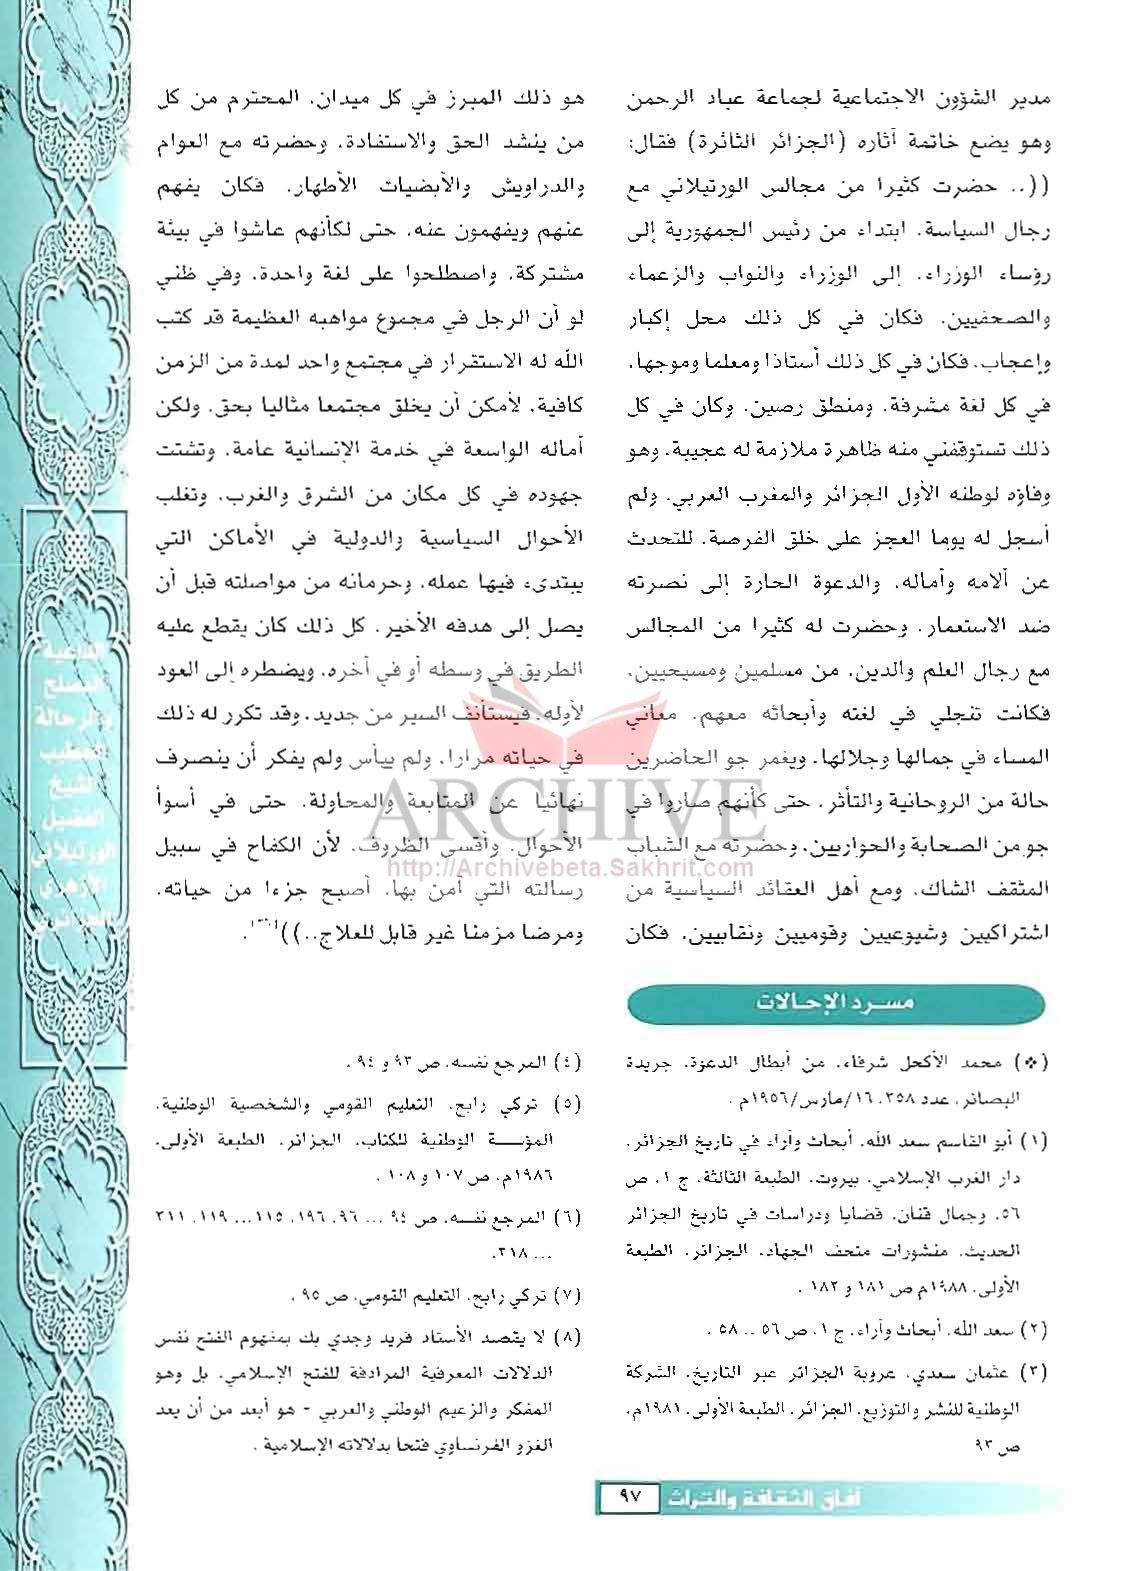 مدير الشؤون الاجتماعية لجماعة عباد الرحمن
وهو يضع خاتمة آثاره (الجزائر الثائرة) فقال:
((.. حضرت كثيرا من مجالس الورتيلاني مع
رجال السياسة، ابتداء من رئيس الجمهورية إلى
رؤساء الوزراء، إلى الوزراء والنواب والزعماء
والصحفيين، فكان في كل ذلك محل إكبار
وإعجاب، فكان في كل ذلك أستاذا ومعلما وموجها،
في كل لغة مشرفة، ومنطق رصين، وكان في كل
ذلك تستوقفني منه ظاهرة ملازمة له عجيبة، وهو
وفاؤه لوطنه الأول الجزائر والمغرب العربي، ولم
أسجل له يوما العجز على خلق الفرصة، للتحدث
عن آلامه وآماله، والدعوة الحارة إلى نصرته
ضد الاستعمار، وحضرت له كثيرا من المجالس
مع رجال العلم والدين، من مسلمين ومسيحيين،
فكانت تتجلي في لغته وأبحاثه معهم، معاني
المساء في جمالها وجلالها، ويغمر جو الحاضرين
حالة من الروحانية والتأثر، حتى كأنهم صاروا في
جو من الصحابة والحواريين، وحضرته مع الشباب
المثقف الشاك، ومع أهل العقائد السياسية من
اشتراكيين وشيوعيين وقوميين ونقابيين، فكان
هو ذلك المبرز في كل ميدان، المحترم من كل
من ينشد الحق والاستفادة، وحضرته مع العوام
والدراويش والأبضيات الأطهار، فكان يفهم
عنهم ويفهمون عنه، حتى لكأنهم عاشوا في بيئة
مشتركة، واصطلحوا على لغة واحدة، وفي ظني
لو أن الرجل في مجموع مواهبه العظيمة قد كتب
الله له الاستقرار في مجتمع واحد لمدة من الزمن
كافية، لأمكن أن يخلق مجتمعا مثاليا بحق، ولكن
آماله الواسعة في خدمة الإنسانية عامة، وتشتت
جهوده في كل مكان من الشرق والغرب، وتغلب
الأحوال السياسية والدولية في الأماكن التي
يبتدىء فيها عمله، وحرمانه من مواصلته قبل أن
يصل إلى هدفه الأخير، كل ذلك كان يقطع عليه
الطريق في وسطه أو في آخره، ويضطره إلى العود
لأوله، فيستأنف السير من جديد، وقد تكرر له ذلك
في حياته مرارا، ولم ييأس ولم يفكر أن ينصرف
نهائيا عن المتابعة والمحاولة، حتى في أسوأ
الأحوال، وأقسى الظروف، لأن الكفاح في سبيل
رسالته التي آمن بها، أصبح جزءا من حياته،
ومرضا مزمنا غير قابل للعلاج..))
ARCHIVE
http://Archivebeta.Sakhrit.com
مسرد الإحالات
(*) محمد الأكحل شرفاء، من أبطال الدعوة، جريدة
البصائر، عدد ٣٥٨، ١٦/مارس/١٩٥٦م.
(١) أبو القاسم سعد الله، أبحاث وآراء في تاريخ الجزائر،
دار الغرب الإسلامي، بيروت، الطبعة الثالثة، ج ١، ص
٥٦، وجمال قنان، قضايا ودراسات في تاريخ الجزائر
الحديث، منشورات متحف الجهاد، الجزائر، الطبعة
الأولى، ١٩٨٨م ص ١٨١ و ١٨٢ .
(٢) سعد الله، أبحاث وآراء، ج ١، ص ٥٦ .. ٥٨ .
(٣) عثمان سعدي، عروبة الجزائر عبر التاريخ، الشركة
الوطنية للنشر والتوزيع، الجزائر، الطبعة الأولى، ١٩٨١م،
ص ٩٣
(٤) المرجع نفسه، ص ٩٣ و ٩٤ .
(٥) تركي رابح، التعليم القومي والشخصية الوطنية،
المؤسسة الوطنية للكتاب، الجزائر، الطبعة الأولى،
١٩٨٦م، ص ١٠٧ و ١٠٨ .
(٦) المرجع نفسه، ص ٩٤ ... ٩٦، ١٩٦، ١١٥ ... ١١٩، ٢١١
... ٢١٨.
(٧) تركي رابح، التعليم القومي، ص ٩٥ .
(٨) لا يقصد الأستاذ فريد وجدي بك بمفهوم الفتح نفس
الدلالات المعرفية المرادفة للفتح الإسلامي، بل وهو
المفكر والزعيم الوطني والعربي - هو أبعد من أن يعد
الغزو الفرنساوي فتحا بدلالاته الإسلامية .
الداعية
المصلح
والرحالة
الخطيب
الشيخ
الفضيل
الورتيلاني
الأزهري
الجزائري
آفاق الثقافة والتراث
٩٧